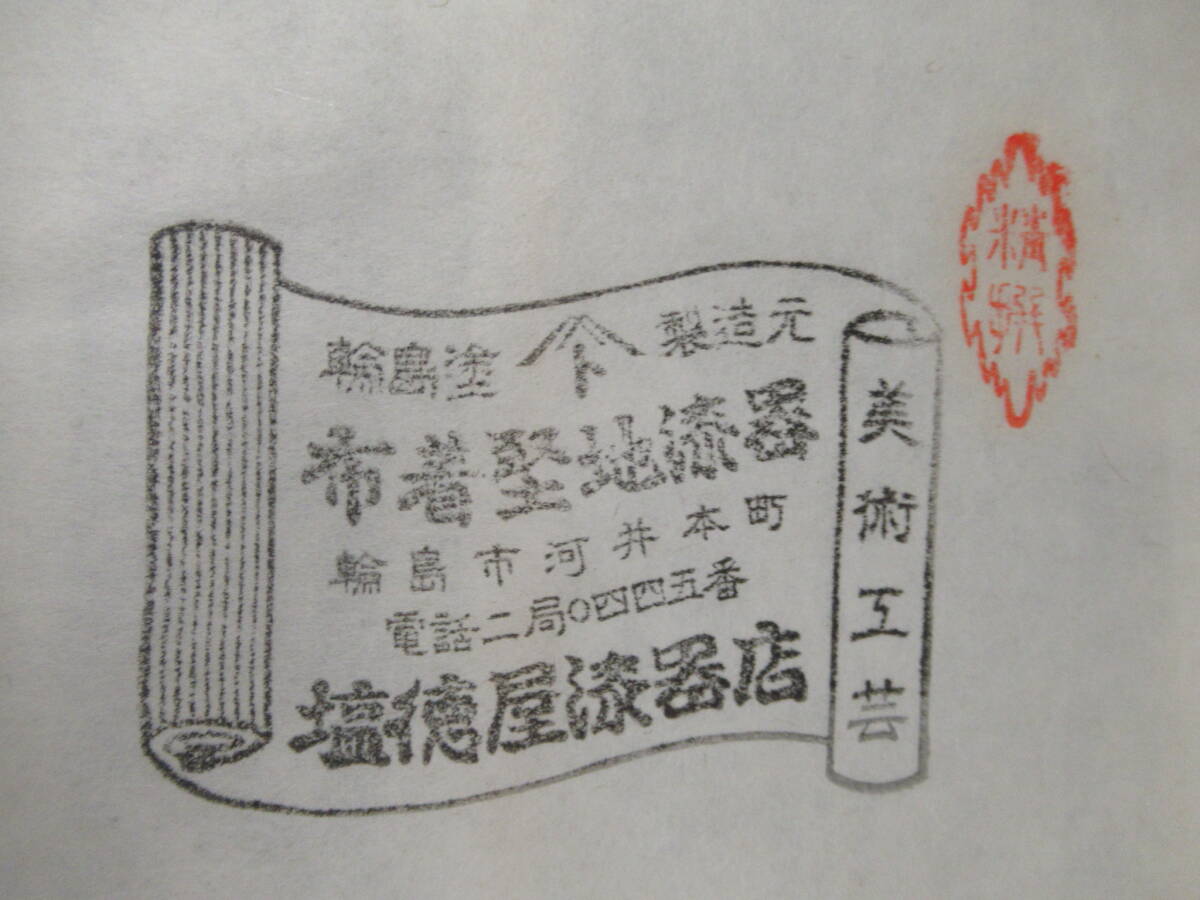 輪島塗 𠆢下 製造元
布着堅地漆器
輪島市河井本町
電話二局〇四四五番
塩徳屋漆器店
美術工芸
精撰